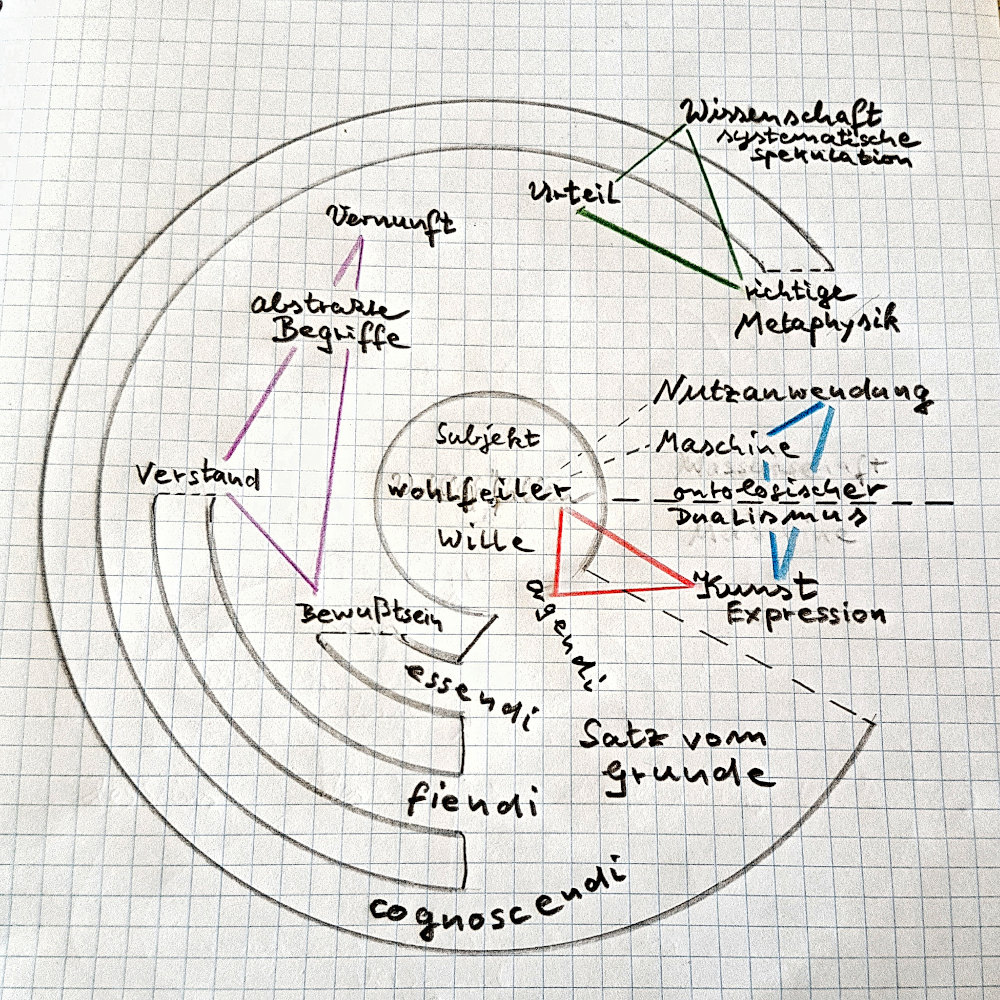 Wissenschaft
systematische
spekulation
Urteil
Vernunft
richtige
Metaphysik
abstrakte
Begriffe
Nutzanwendung
Subjekt
Maschine
Verstand
wohlfeiler
ontologischer
Dualismus
Wille
Kunst
Expression
agendi
Bewußtsein
essendi
Satz vom
Grunde
fiendi
cognoscendi